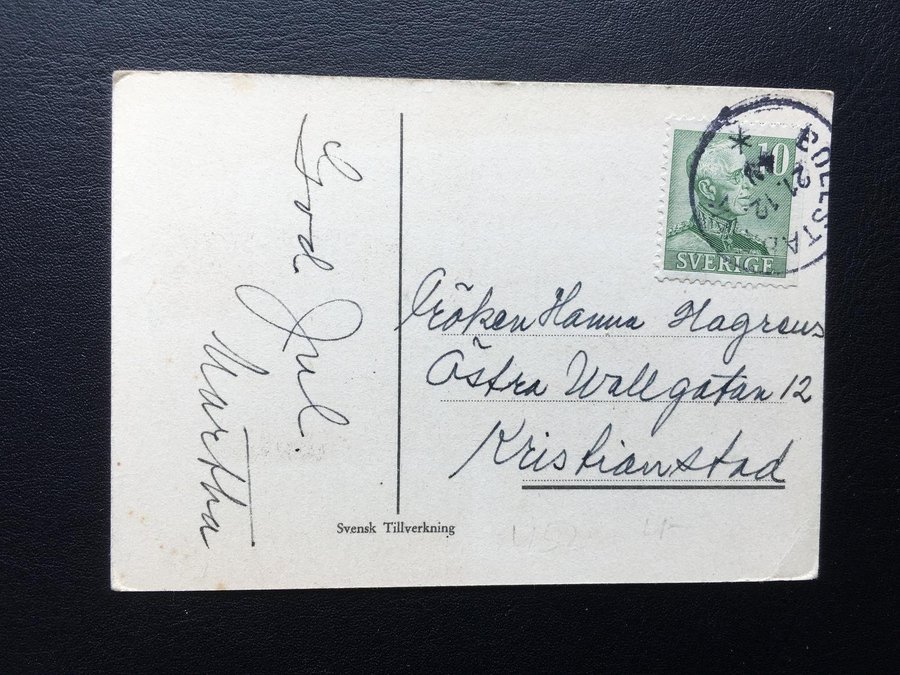 God
Jul.
Martha
Fröken Hanna Hagrens
Östra Wallgatan 12
Kristianstad
Svensk Tillverkning
10
SVERIGE
21 12